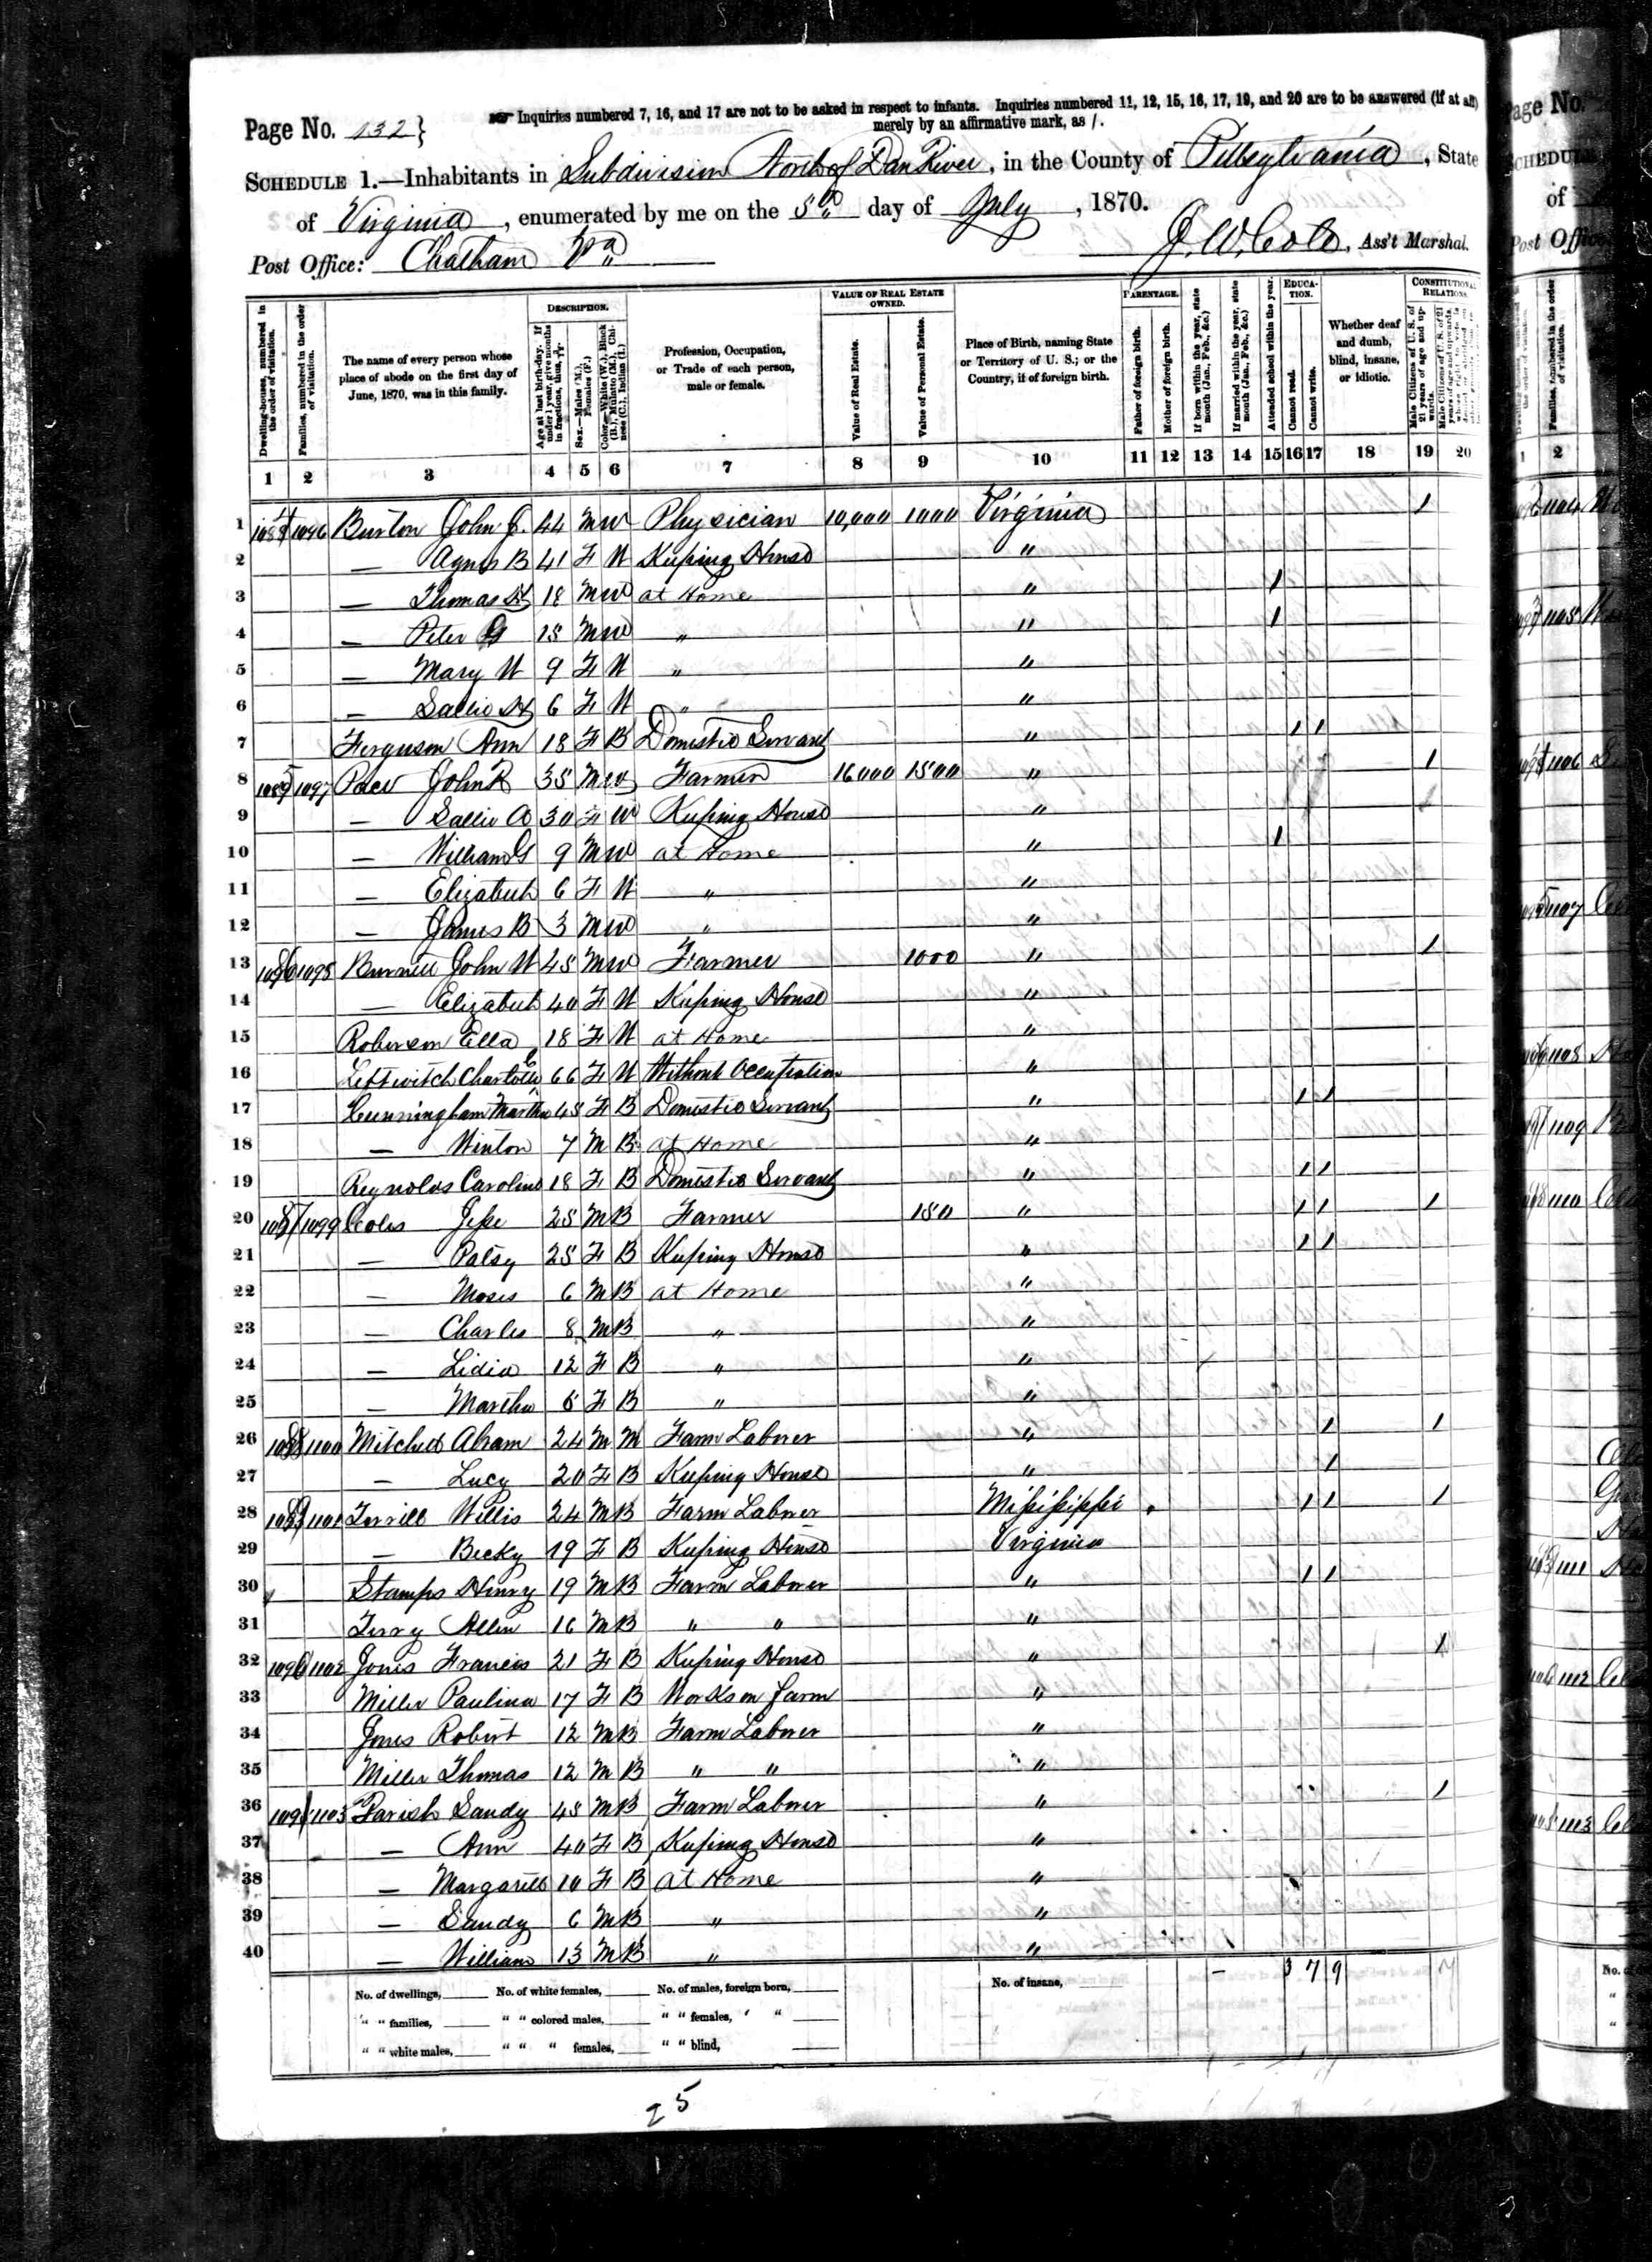 Page No. 132
Inquiries numbered 7, 16, and 17 are not to be asked in respect to infants. Inquiries numbered 11, 12, 15, 16, 17, 19, and 20 are to be answered (if at all)
merely by an affirmative mark, as /.
SCHEDULE 1.—Inhabitants in Subdivision North of Dan River, in the County of Pittsylvania, State
of Virginia, enumerated by me on the 5th day of July, 1870.
Post Office: Chatham Va
J. W. Cole, Ass't Marshal.
Dwelling-houses, numbered in the order of visitation.
Families, numbered in the order of visitation.
The name of every person whose place of abode on the first day of June, 1870, was in this family.
DESCRIPTION.
Age at last birth-day. If under 1 year, give months in fractions, thus,
Sex.—Males (M.), Females (F.)
Color.—White (W.), Black (B.), Mulatto (M.), Chinese (C.), Indian (I.)
Profession, Occupation, or Trade of each person, male or female.
VALUE OF REAL ESTATE OWNED.
Value of Real Estate.
Value of Personal Estate.
Place of Birth, naming State or Territory of U. S.; or the Country, if of foreign birth.
PARENTAGE.
Father of foreign birth.
Mother of foreign birth.
If born within the year, state month (Jan., Feb., &c.)
If married within the year, state month (Jan., Feb., &c.)
Attended school within the year.
EDUCATION.
Cannot read.
Cannot write.
Whether deaf and dumb, blind, insane, or idiotic.
CONSTITUTIONAL RELATIONS.
Male Citizens of U. S. of 21 years of age and upwards.
1 2 3 4 5 6 7 8 9 10 11 12 13 14 15 16 17 18 19 20
1 1084 1096 Burton John J. 44 M W Physician 10,000 1000 Virginia 1
2 — Agnes B 41 F W Keeping House "
3 — Thomas H 18 M W at Home " 1
4 — Peter G 15 M W " " 1
5 — Mary W 9 F W " "
6 — Sallie H 6 F W " "
7 Ferguson Ann 18 F B Domestic Servant " 1 1
8 1085 1097 John R 35 M W Farmer 16000 1500 " 1
9 — Sallie A 30 F W Keeping House "
10 — William G 9 M W at Home " 1
11 — Elizabeth 6 F W " "
12 — James B 3 M W " "
13 1086 1098 Burnett John W 45 M W Farmer 1000 " 1
14 — Elizabeth 40 F W Keeping House "
15 Roberson Ella 18 F W at Home "
16 Leftwitch Charlotte 66 F W Without Occupation "
17 Cunningham Martha 45 F B Domestic Servant " 1 1
18 — Winton 7 M B at Home "
19 Reynolds Caroline 18 F B Domestic Servant " 1 1
20 1087 1099 Coles Jesse 25 M B Farmer 150 " 1 1 1
21 — Patsy 25 F B Keeping House " 1 1
22 — Moses 6 M B at Home "
23 — Charles 8 M B " "
24 — Lidia 12 F B " "
25 — Martha 5 F B " "
26 1088 1100 Mitchell Abram 24 M M Farm Laborer " 1 1
27 — Lucy 20 F B Keeping House " 1
28 1089 1101 Terrill Willis 24 M B Farm Laborer Mississippi 1 1 1
29 — Becky 19 F B Keeping House Virginia
30 Stamps Henry 19 M B Farm Laborer " 1 1
31 Terry Allen 16 M B " " "
32 1090 1102 Jones Frances 21 F B Keeping House " 1
33 Miller Paulina 17 F B Works on farm "
34 Jones Robert 12 M B Farm Laborer "
35 Miller Thomas 12 M B " " "
36 1091 1103 Parish Sandy 45 M B Farm Laborer " 1
37 — Ann 40 F B Keeping House "
38 — Margarett 10 F B at Home "
39 — Sandy 6 M B " "
40 — William 13 M B " "
No. of dwellings, No. of white females, No. of males, foreign born, No. of insane, 7 9
" " families, " " colored males, " " females, " "
" " white males, " " " females, " " blind,
25